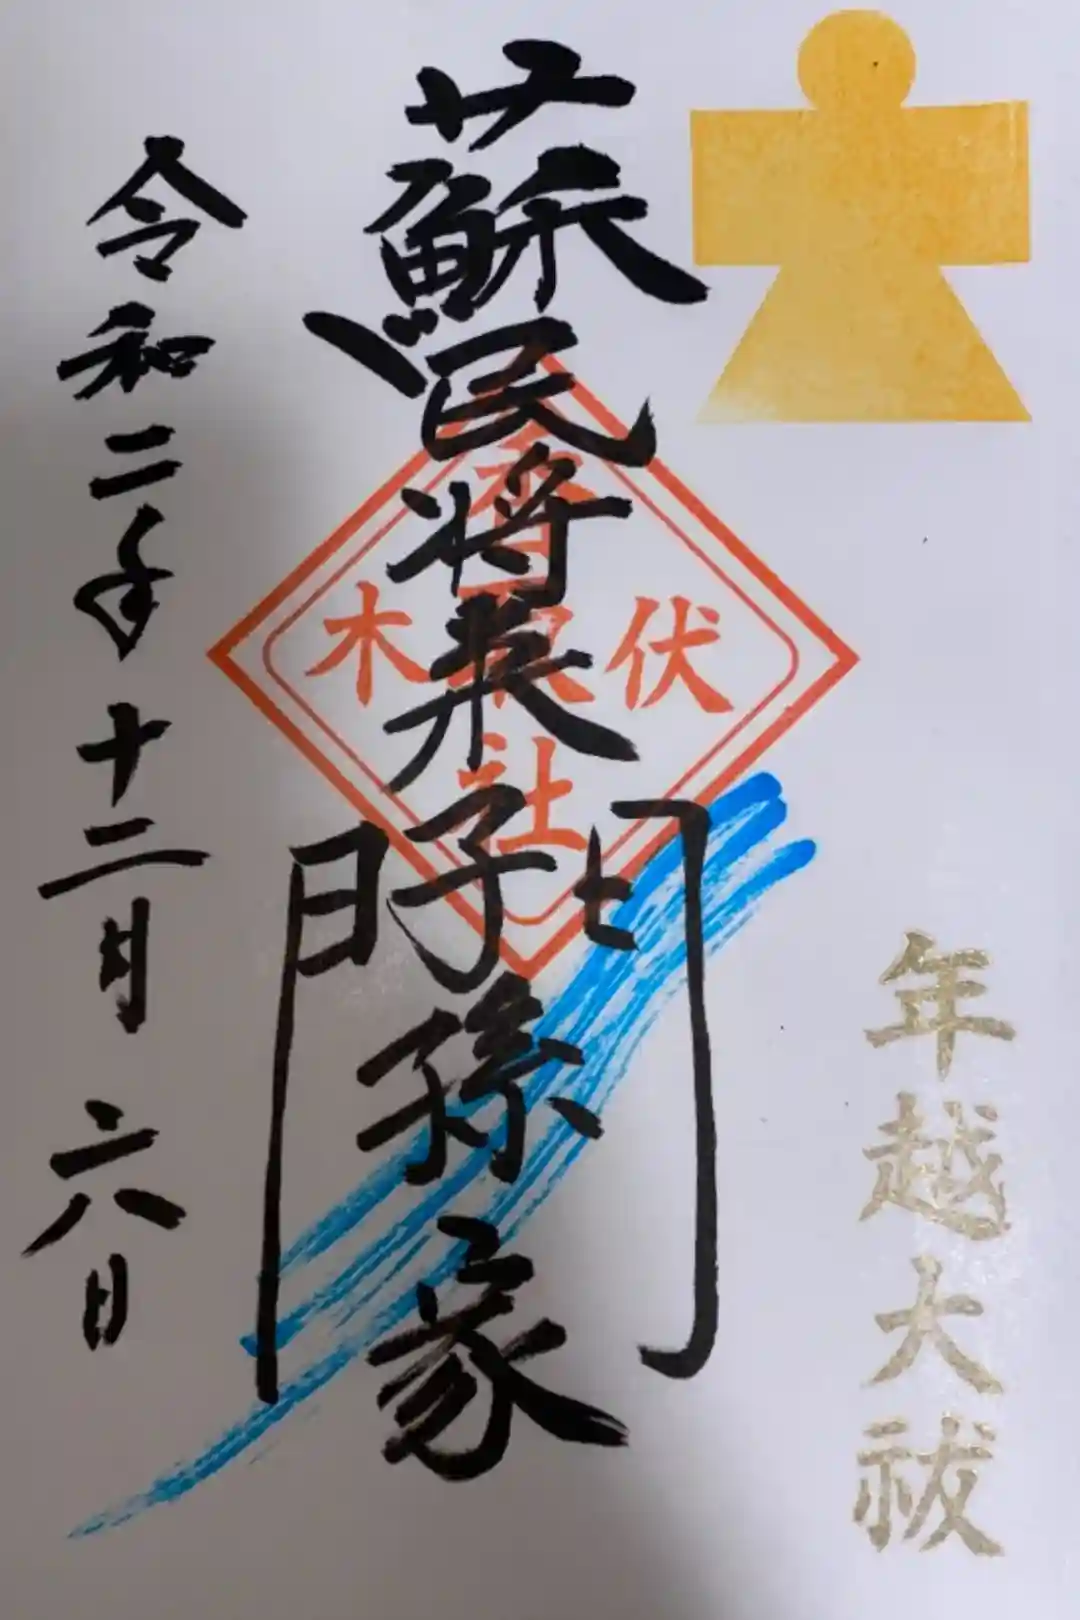 年越大祓
蘇民将来子孫家門
香
木根伏
社
令和二年十二月六日